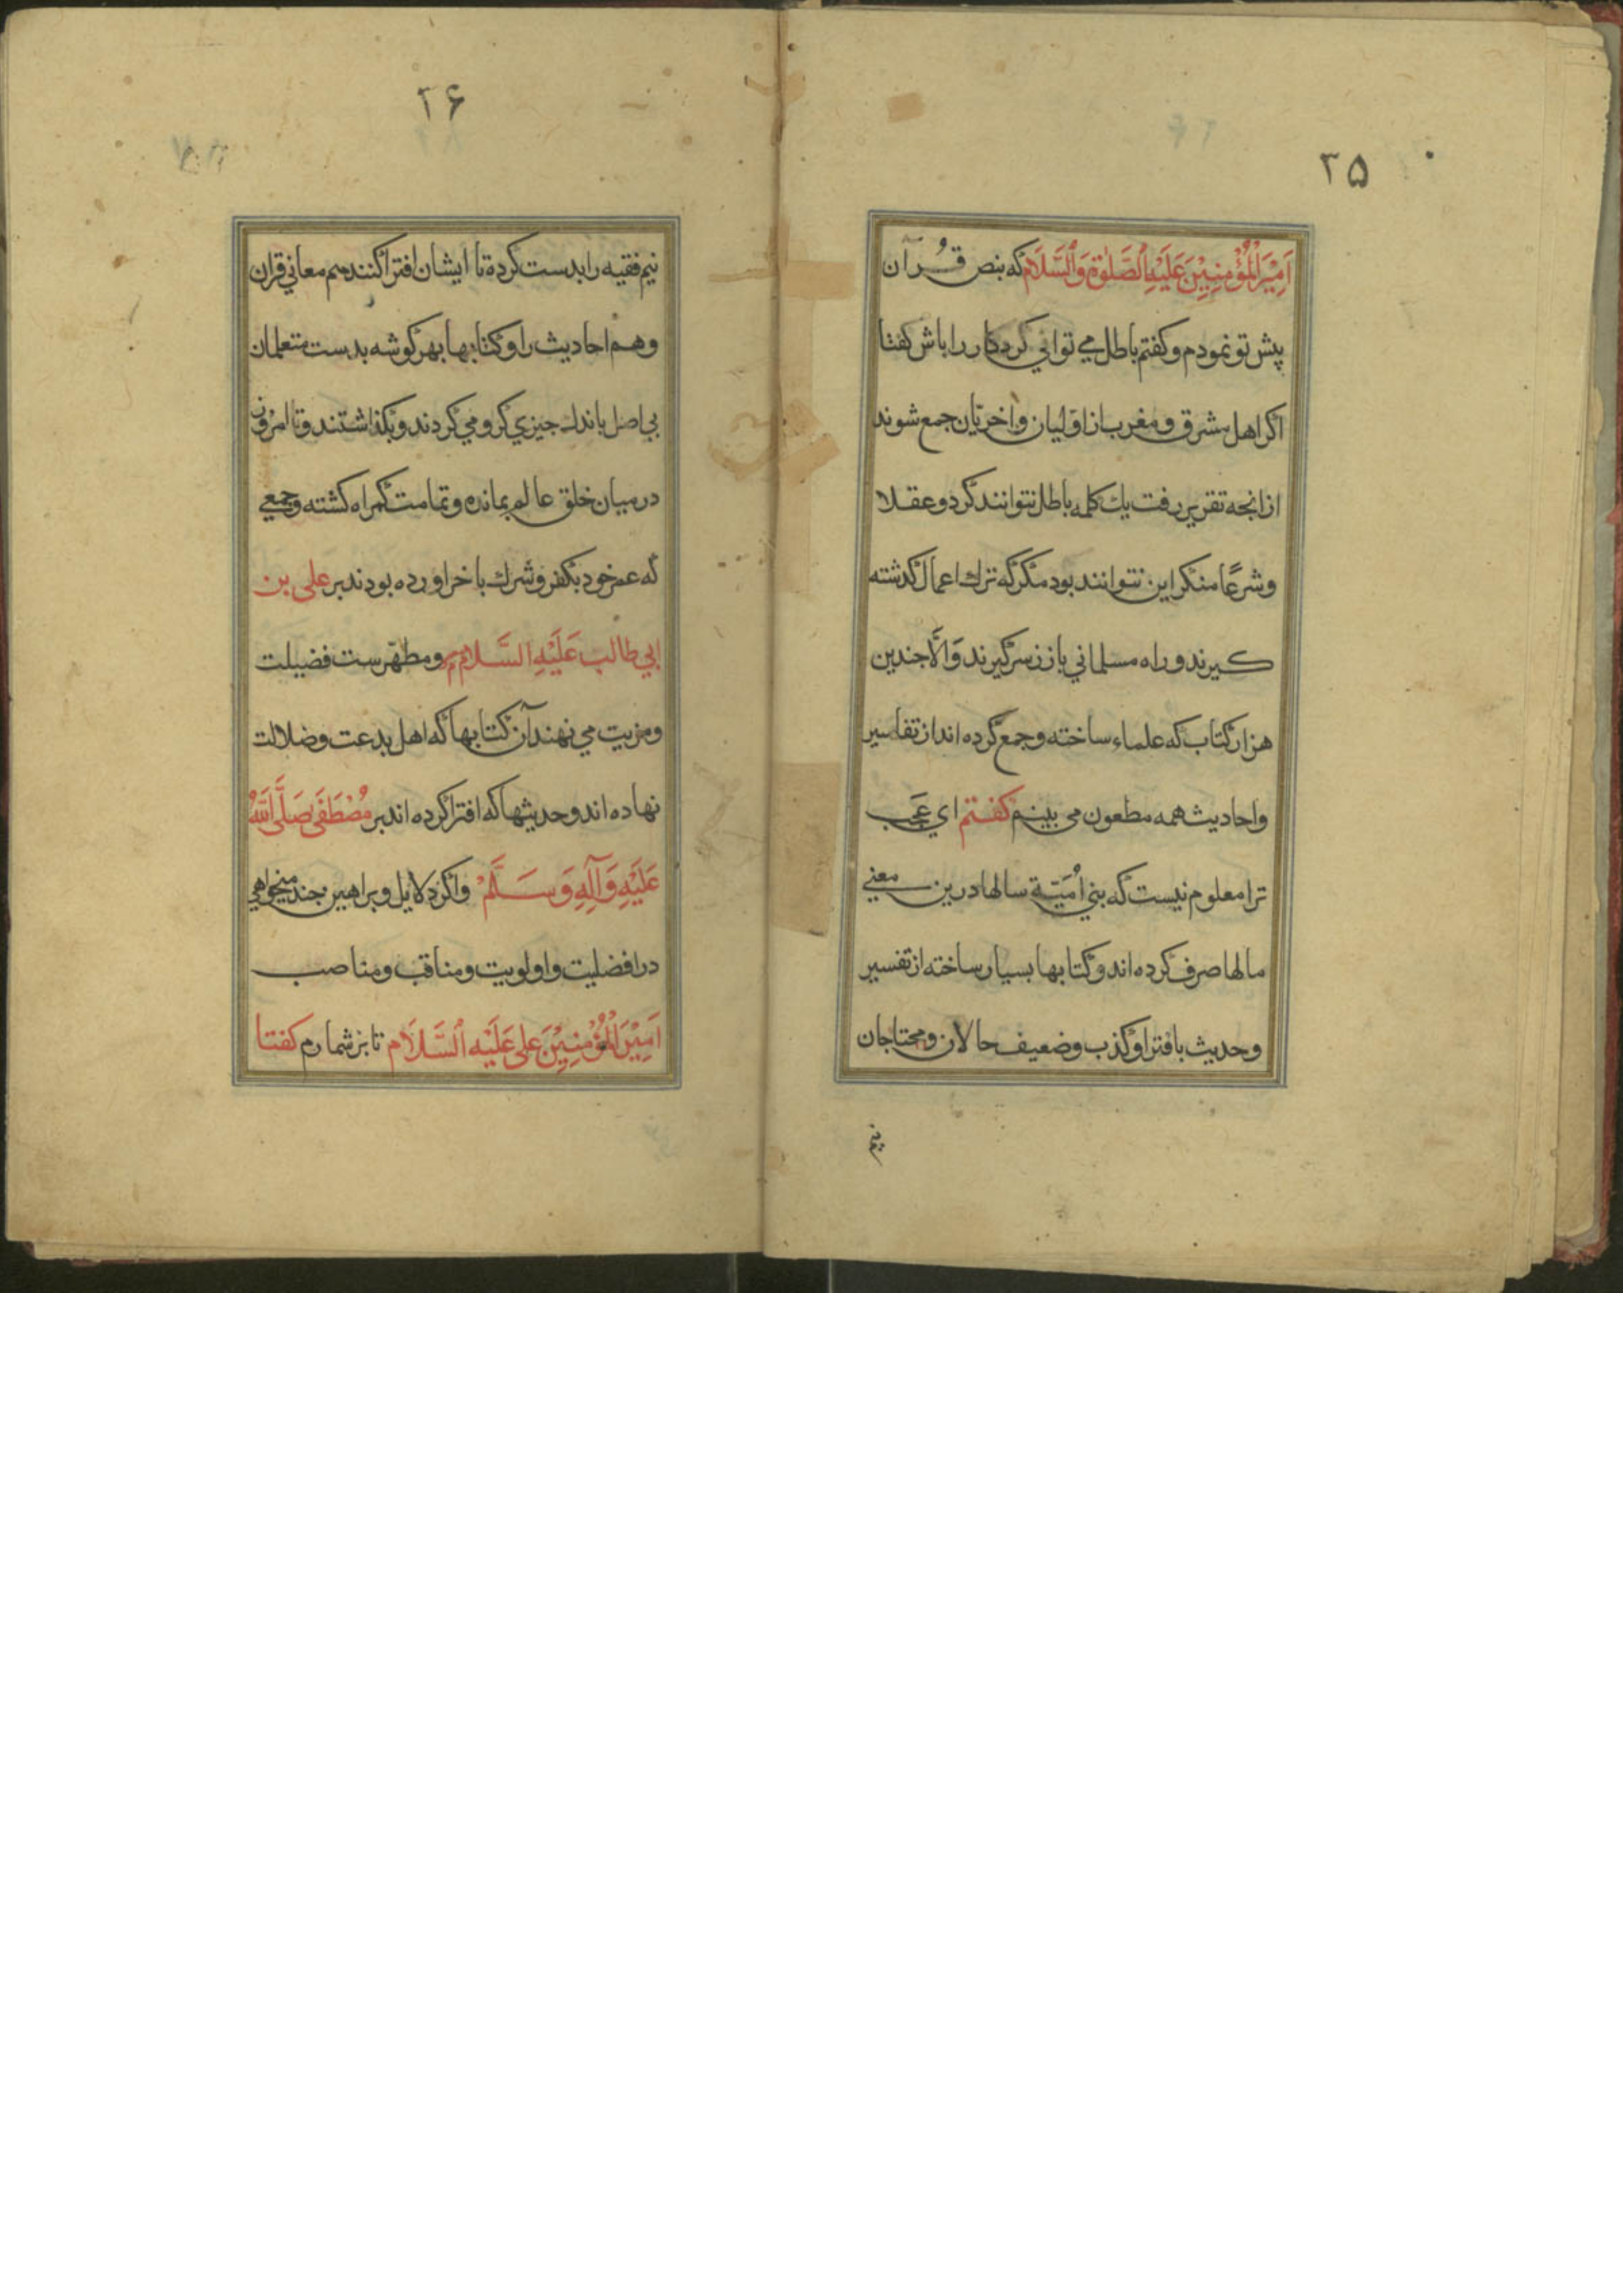 ۲۵
اَمِيْرَالْمُؤْمِنِيْنَ عَلَيْهِ الصَّلٰوةُ وَالسَّلَامُ كه بنص قُرآن
پيش تو نمودم وكفتم باطل مي تواني كردكار را باش كفتا
اكر اهل مشرق و مغرب از اوّليان و اخريان جمع شوند
از انجه تقرير رفت يك كلمه باطل نتوانند كرد و عقلا
وشرعًا منكر اين نتوانند بود مكر كه ترك اعمال كذشته
كيرند و راه مسلماني باز زسر كيرند وَالَّا جندين
هزار كتاب كه علماء ساخته و جمع كرده اند از تفاسير
واحاديث همه مطعون مي بينم كفتم اي عَجَب
ترا معلوم نيست كه بني اُمَيّة سالها درين معني
مالها صرف كرده اند و كتابها بسيار ساخته از تفسير
وحديث بافترا و كذب و ضعيف حالان و محتاجان
نيم
۲۶
نيم فقيه را بدست كرده تا ايشان افترا كنند هم معاني قران
وهم احاديث را و كتابها بهر كوشه بدست متعلمان
بي اصل باندك جيزي كرو مي كردند و بكذاشتند و تا امروز
در ميان خلق عالم بمانده و تمامت كمراه كشته و جمعي
كه عمر خود بكفر و شرك باخر اورده بودند بر علي بن
ابي طالب عَلَيْهِ السَّلَام و مطهّرست فضيلت
ومزيت مي نهند آن كتابها كه اهل بدعت و ضلالت
نهاده اند و حديثها كه افترا كرده اند بر مُصْطَفَى صَلَّى اللّٰهُ
عَلَيْهِ وَآلِهِ وَسَلَّمْ واكر دلايل و براهين جند ميخواهي
در افضليت و اولويت و مناقب و مناصب
اَمِيْرَالْمُؤْمِنِيْنَ عَلى عَلَيْهِ السَّلَام تا بر شمارم كفتا